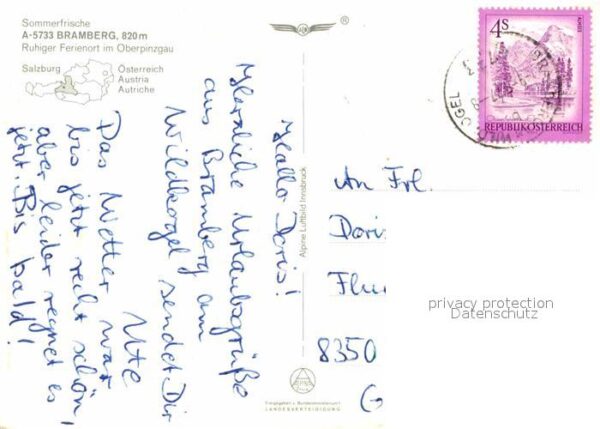 Sommerfrische
A-5733 BRAMBERG, 820 m
Ruhiger Ferienort im Oberpinzgau
Salzburg
Österreich
Austria
Autriche
Hallo Doris!
Herzliche Urlaubsgrüße
aus Bramberg am
Wildkogel sendet Dir
Ute
Das Wetter war
bis jetzt recht schön,
aber leider regnet es
jetzt. Bis bald!
Alpine Luftbild Innsbruck
Freigegeben v. Bundesministerium f.
LANDESVERTEIDIGUNG
4S
REPUBLIK ÖSTERREICH
An Frl.
Doris
Flu
8350
privacy protection
Datenschutz